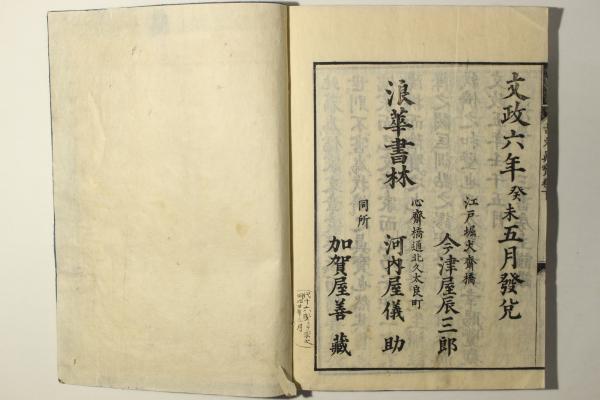 文政六年癸未五月發兌
江戸堀犬齋橋
今津屋辰三郎
浪華書林
心齋橋通北久太良町
河内屋儀助
同所
加賀屋善藏